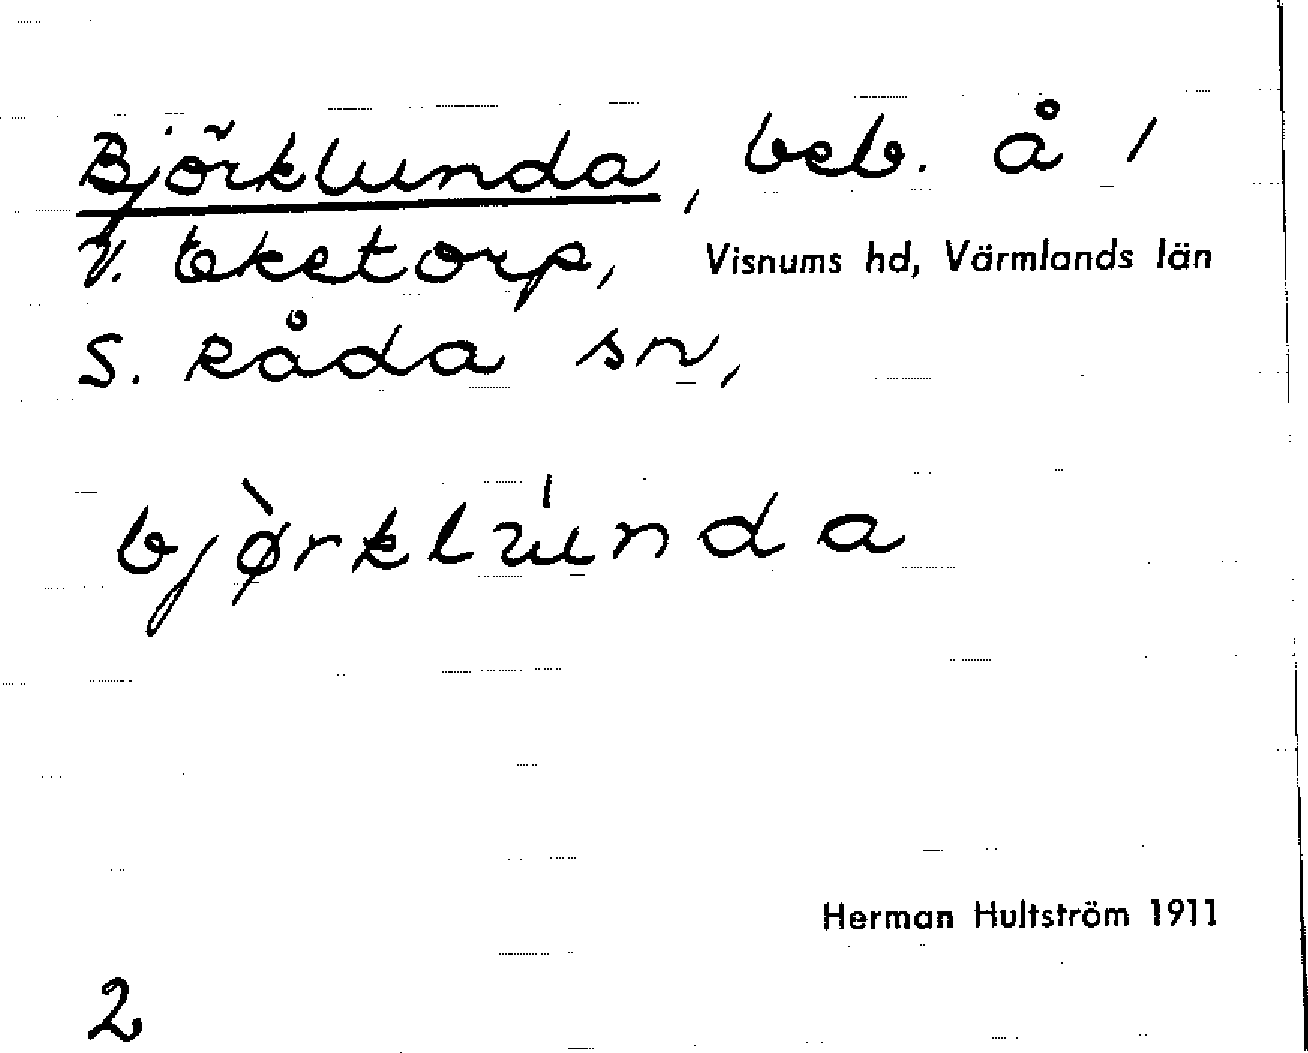 Björklunda, beb. å /
V. Eketorp, Visnums hd, Värmlands län
S. Råda sn,
bjø̀rklúnda
Herman Hultström 1911
2